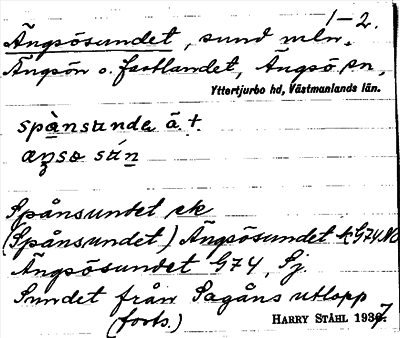 1–2.
Ängsösundet, sund mln.
Ängsön o. fastlandet, Ängsö sn,
Yttertjurbo hd, Västmanlands län.
spånsunda ä. t.
Spånsundet ek
(Spånsundet) Ängsösundet k G74 NO
Ängsösundet G74, Sj.
Sundet från Sagåns utlopp
(forts.) HARRY STÅHL 1937.